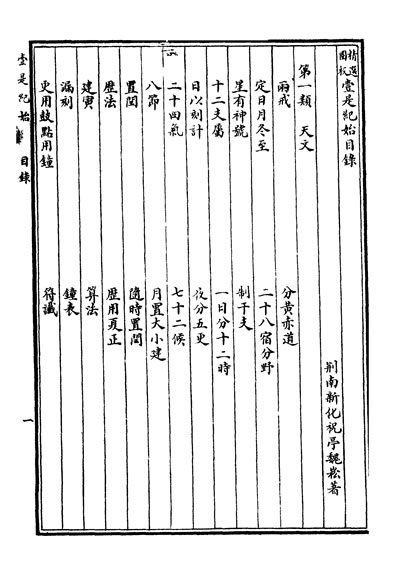 精選圖板壹是紀始目錄
荆南新化祝亭魏崧著
第一類 天文
兩戒 分黃赤道
定日月冬至 二十八宿分野
星有神號 制干支
十二支屬 一日分十二時
日以刻計 夜分五更
二十四氣 七十二候
八節 月置大小建
置閏 隨時置閏
歷法 歷用夏正
建寅 算法
漏刻 鐘表
更用鼓點用鐘 符讖
壹是紀始 目錄
一